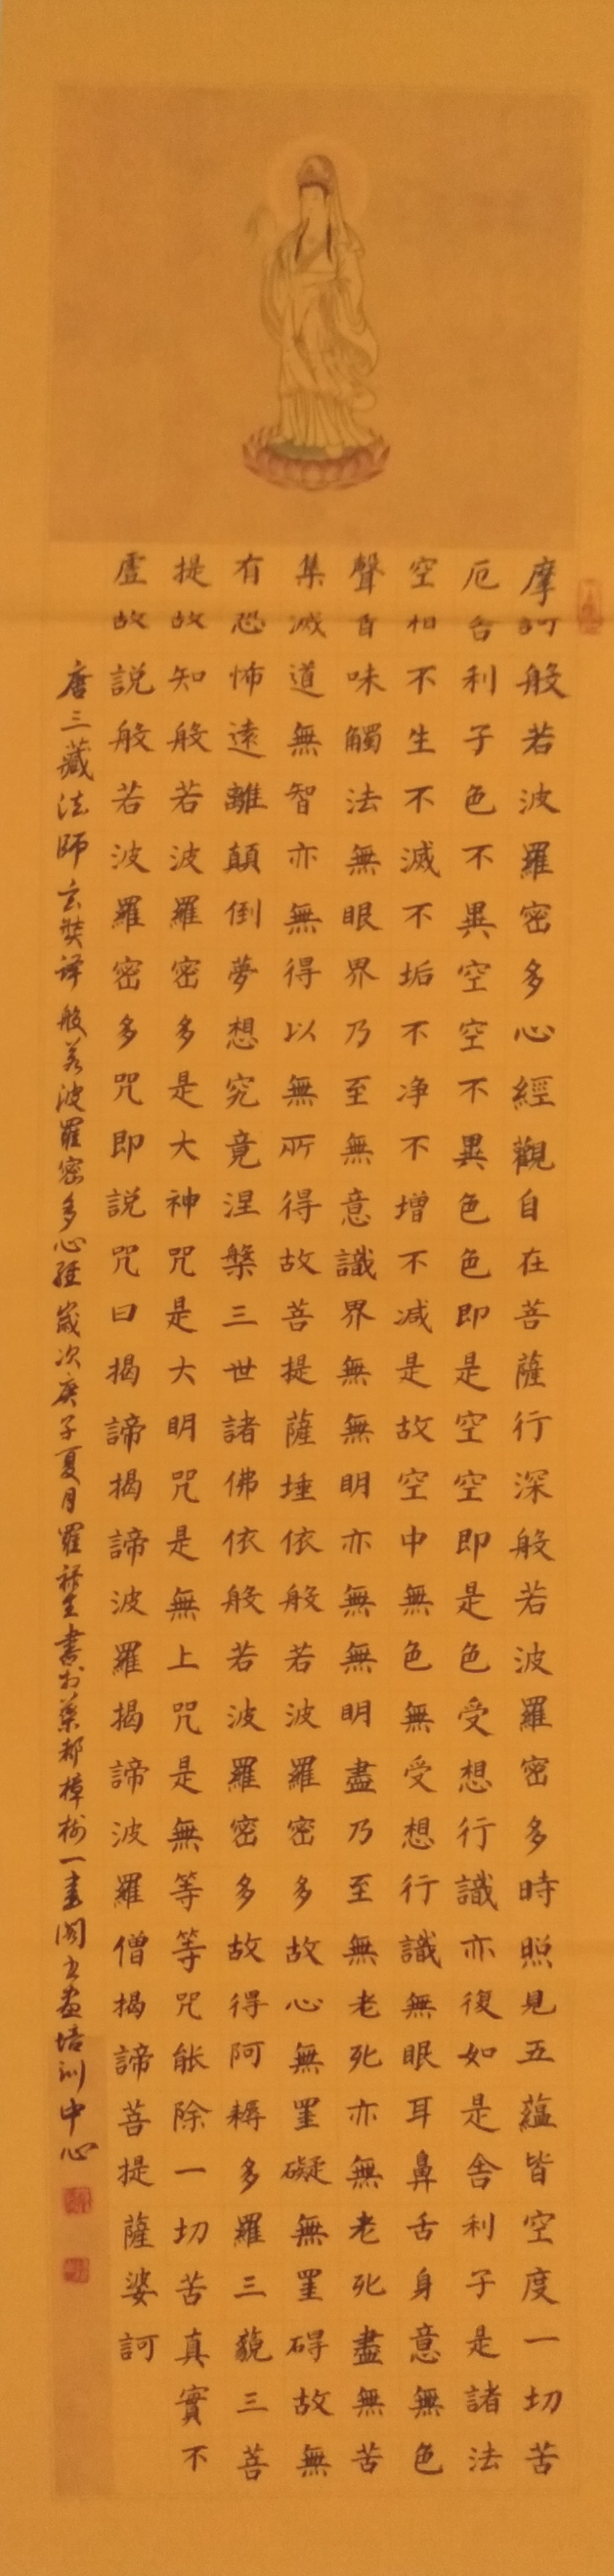 摩訶般若波羅密多心經觀自在菩薩行深般若波羅密多時照見五蘊皆空度一切苦
厄舍利子色不異空空不異色色即是空空即是色受想行識亦復如是舍利子是諸法
空相不生不滅不垢不净不增不减是故空中無色無受想行識無眼耳鼻舌身意無色
聲香味觸法無眼界乃至無意識界無無明亦無無明盡乃至無老死亦無老死盡無苦
集滅道無智亦無得以無所得故菩提薩埵依般若波羅密多故心無罣礙無罣碍故無
有恐怖遠離顛倒夢想究竟涅槃三世諸佛依般若波羅密多故得阿耨多羅三藐三菩
提故知般若波羅密多是大神咒是大明咒是無上咒是無等等咒能除一切苦真實不
虛故説般若波羅密多咒即説咒曰揭諦揭諦波羅揭諦波羅僧揭諦菩提薩婆訶
唐三藏法師玄奘译般若波羅密多心經嵗次庚子夏月羅書於藥都樟樹一畫閣书畫培训中心